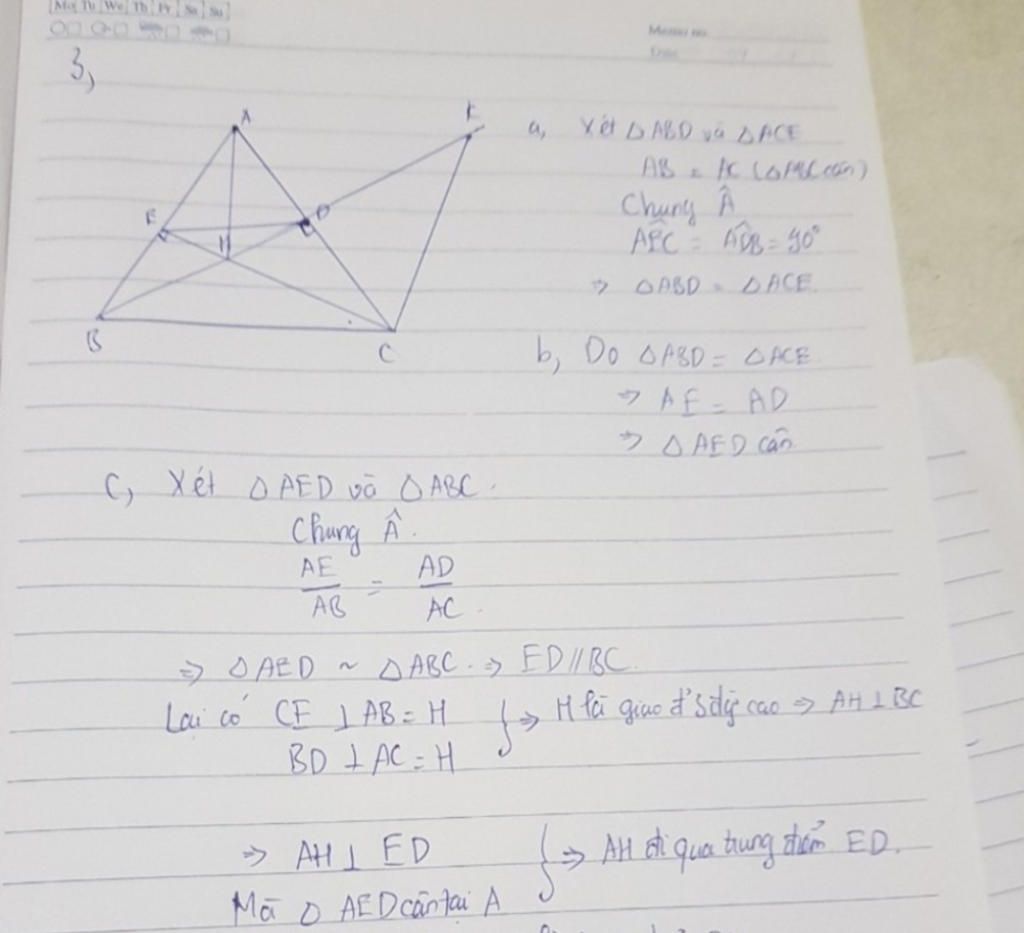 Mo Tu We Th Fr Sa Su
Memo no.
Date
3,
A
K
E
D
H
B
C
a, Xét △ABD và △ACE
AB = AC (△ABC cân)
Chung Â
AEC = ADB = 90°
⇒ △ABD = △ACE.
b, Do △ABD = △ACE.
⇒ AE = AD
⇒ △AED cân
C, Xét △AED và △ABC.
Chung Â.
AE/AB = AD/AC.
⇒ △AED ~ △ABC. ⇒ ED//BC.
Lại có CE ⊥ AB = H } ⇒ H là giao đ' 3 đg cao ⇒ AH ⊥ BC
BD ⊥ AC = H
⇒ AH ⊥ ED } ⇒ AH đi qua trung điểm ED.
Mà △ AED cân tại A